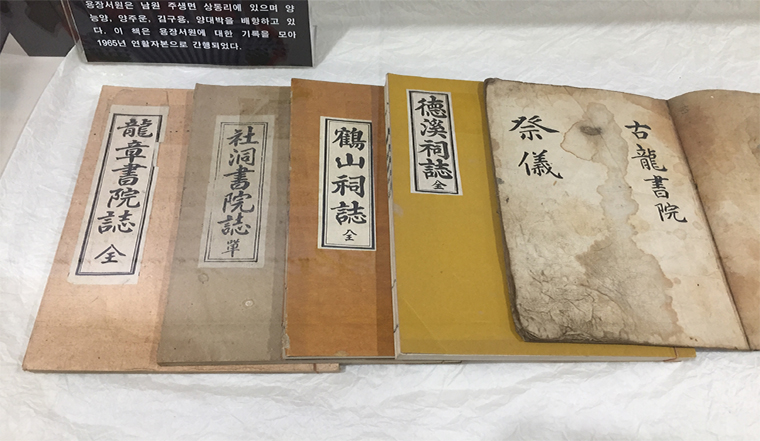 용장서원은 남원 주생면 상동리에 있으며 양
능양, 양주운, 김구용, 양대박을 배향하고 있
다. 이 책은 용장서원에 대한 기록을 모아
1965년 연활자본으로 간행되었다.
龍章書院誌 全
社洞書院誌 單
鶴山祠誌 全
德溪祠誌 全
古龍書院
祭儀